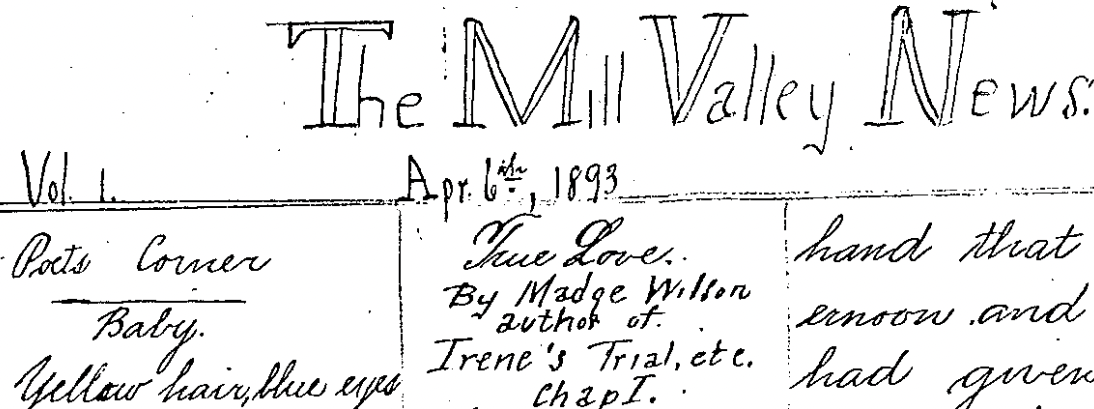 The Mill Valley News.
Vol. 1. Apr. 6th, 1893
Poets Corner
Baby.
Yellow hair, blue eyes
True Love.
By Madge Wilson
author of
Irene's Trial, etc.
Chap I.
hand that
ernoon and
had given